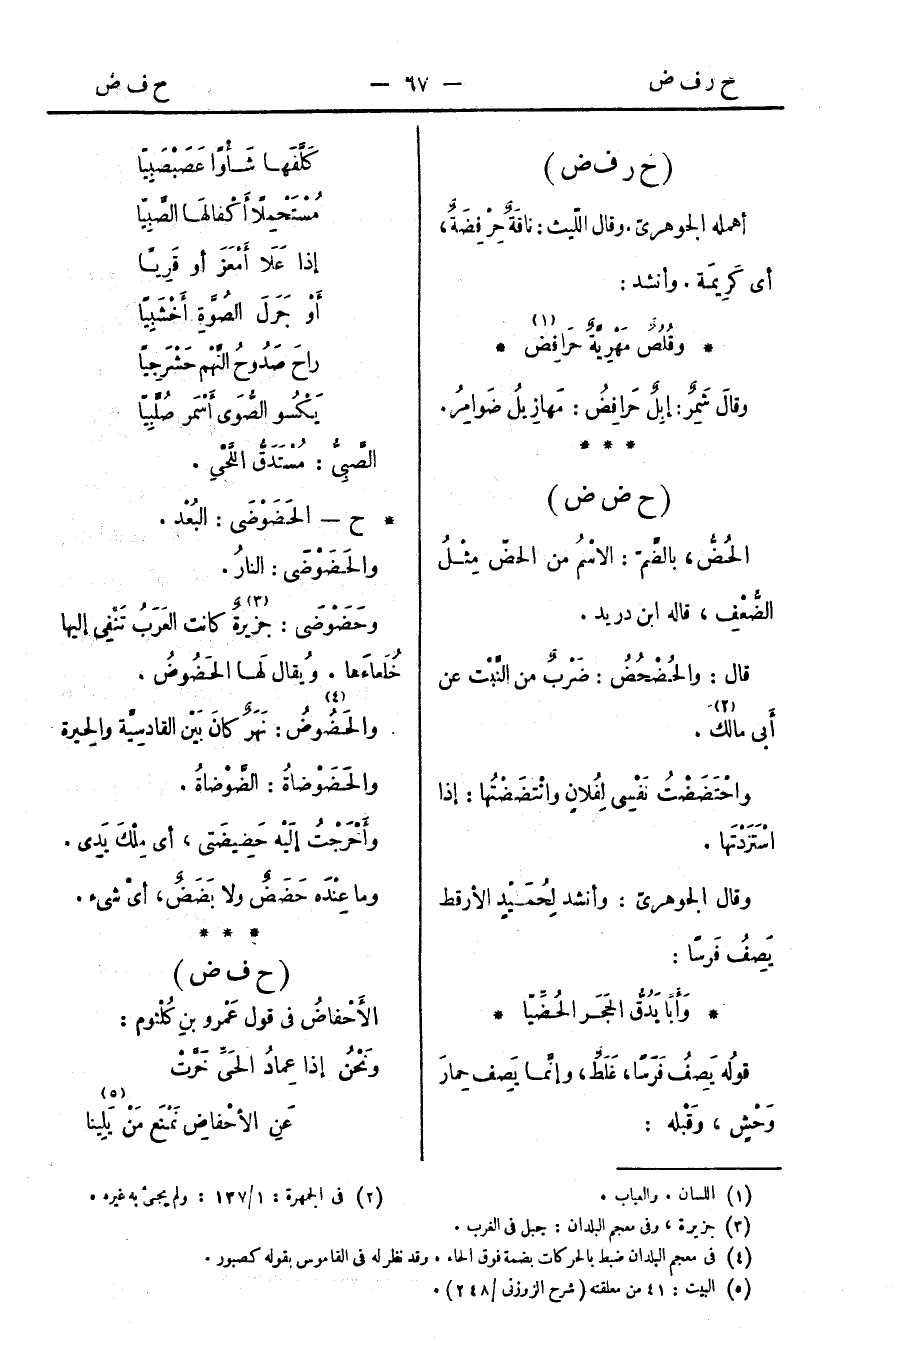 ح ر ف ض — ٦٧ — ح ف ض
(ح ر ف ض)
أهمله الجوهرىّ. وقال اللّيث: ناقَةٌ حِرْفِضَةٌ،
أى كَرِيمَة. وأنشد:
* وقُلُصٌ مَهْرِيَّةٌ حَرَافِضُ (١) *
وقالَ شَمِرٌ: إبِلٌ حَرافِضُ: مَهازِيلُ ضَوامِرُ.
* * *
(ح ض ض)
الحُضُّ، بالضَّمّ: الاسْمُ من الحَضّ مِثْلُ
الضُّعْفِ، قاله ابن دريد.
قال: والحُضْحُضُ: ضَرْبٌ من النَّبْت عن
أَبى مالك (٢).
واحْتَضَضْتُ نَفْسِى لِفُلانٍ وانْتَضَضْتُها: إذا
اسْتَزَدْتَها.
وقال الجوهرىّ: وأنشد لِحُمَيْدٍ الأرقط
يَصِفُ فَرسًا:
* وَأْبًا يَدُقُّ الحَجَر الحُضِّيّا *
قولُه يَصِفُ فَرَسًا، غَلَطٌ، وإنَّما يَصِف حِمارَ
وَحْشٍ، وَقَبْله:
كَلَّفَها شَأْوًا عَصَبْصَبِيّا
مُسْتَحْمِلًا أَكْفالَهَا الصَّبِيّا
إذا عَلَا أَمْعَزَ أو قَرِيّا
أَوْ جَرَلَ الصُوَّةِ أَخْشَبِيًّا
راحَ صَدُوحُ النَّهْم حَشْرَجِيّا
يَكْسُو الصُّوَى أَسْمَر صُلَّبِيّا
الصَّبِىُّ: مُسْتَدَقُّ اللَّحْىِ.
* ح — الحَضَوْضَى: البُعْد.
والحَضَوْضَى: النارُ.
وحَضَوْضَى: جزيرةٌ (٣) كانت العَرَبُ تَنْفِى إليها
خُلَعاءَها. ويُقال لَها الحَضُوضُ.
والحَضُوضُ (٤): نَهَرٌ كانَ بَيْن القادِسيَّة والحِيرة
والحَضَوْضاةُ: الضَّوْضاةُ.
وأَخْرَجْتُ إلَيْه حَضِيضَتِى، أى مِلْكَ يَدِى.
وما عِنْدَه حَضَضٌ ولا بَضَضٌ، أىْ شىء.
* * *
(ح ف ض)
الأَحْفاضُ فى قول عَمْرِو بنِ كُلْثوم:
ونَحْنُ إذا عِمادُ الحَىِّ خَرَّتْ
عَنِ الأحْفاضِ نَمْنَع مَنْ يَلِينا (٥)
(١) اللسان. والعباب.
(٢) فى الجمهرة: ١/١٣٧: ولم يجئ به غيره.
(٣) جزيرة، وفى معجم البلدان: جبل فى الغرب.
(٤) فى معجم البلدان ضبط بالحركات بضمة فوق الحاء. وقد نظر له فى القاموس بقوله كصبور.
(٥) البيت: ٤١ من معلقته (شرح الزوزنى / ٢٤٨).